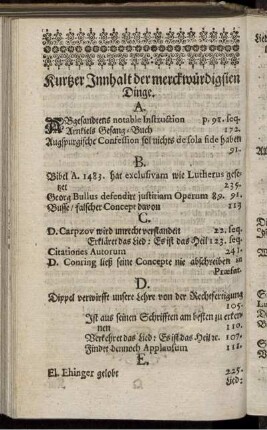 Kurtzer Innhalt der merckwürdigsten
Dinge.
A.
ABgesandtens notable Instruction p. 91. seq.
Arnkiels Gesang-Buch 172.
Augspurgische Confession sol nichts de sola fide haben
91.
B.
Bibel A. 1483. hat exclusivam wie Lutherus gese-
tzet 235.
Georg Bullus defendirt justitiam Operum 89. 91.
Busse / falscher Concept davon 113
C.
D. Carpzov wird unrecht verstanden 22. seq.
Erkläret das Lied: Es ist das Heil 123. seq.
Citationes Autorum 243.
D. Conring ließ seine Concepte nie abschreiben in
Præfat.
D.
Dippel verwirfft unsere Lehre von der Rechtfertigung
105.
Ist aus seinen Schrifften am besten zu erken-
nen 110.
Verkehret das Lied: Es ist das Heil ꝛc. 107.
Findet dennoch Applausum 111.
E.
El. Ehinger gelobt 225.
Lied: